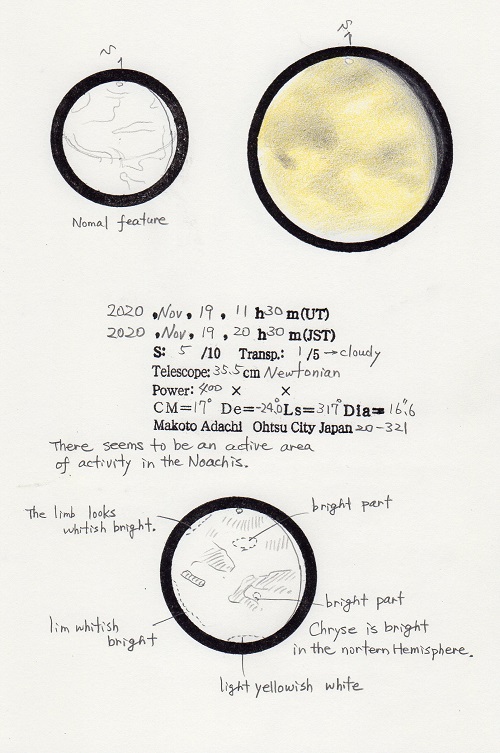 N
N
Nomal feature
2020 , Nov , 19 , 11 h 30 m(UT)
2020 , Nov , 19 , 20 h 30 m(JST)
S: 5 /10 Transp.: 1 /5 → cloudy
Telescope: 35.5 cm Newtonian
Power: 400 × ×
CM=17° De=-24.0° Ls=317° Dia=16".6
Makoto Adachi Ohtsu City Japan 20-321
There seems to be an active area
of activity in the Noachis.
The limb looks
whitish bright.
bright part
lim whitish
bright
bright part
Chryse is bright
in the nortern Hemisphere.
light yellowish white